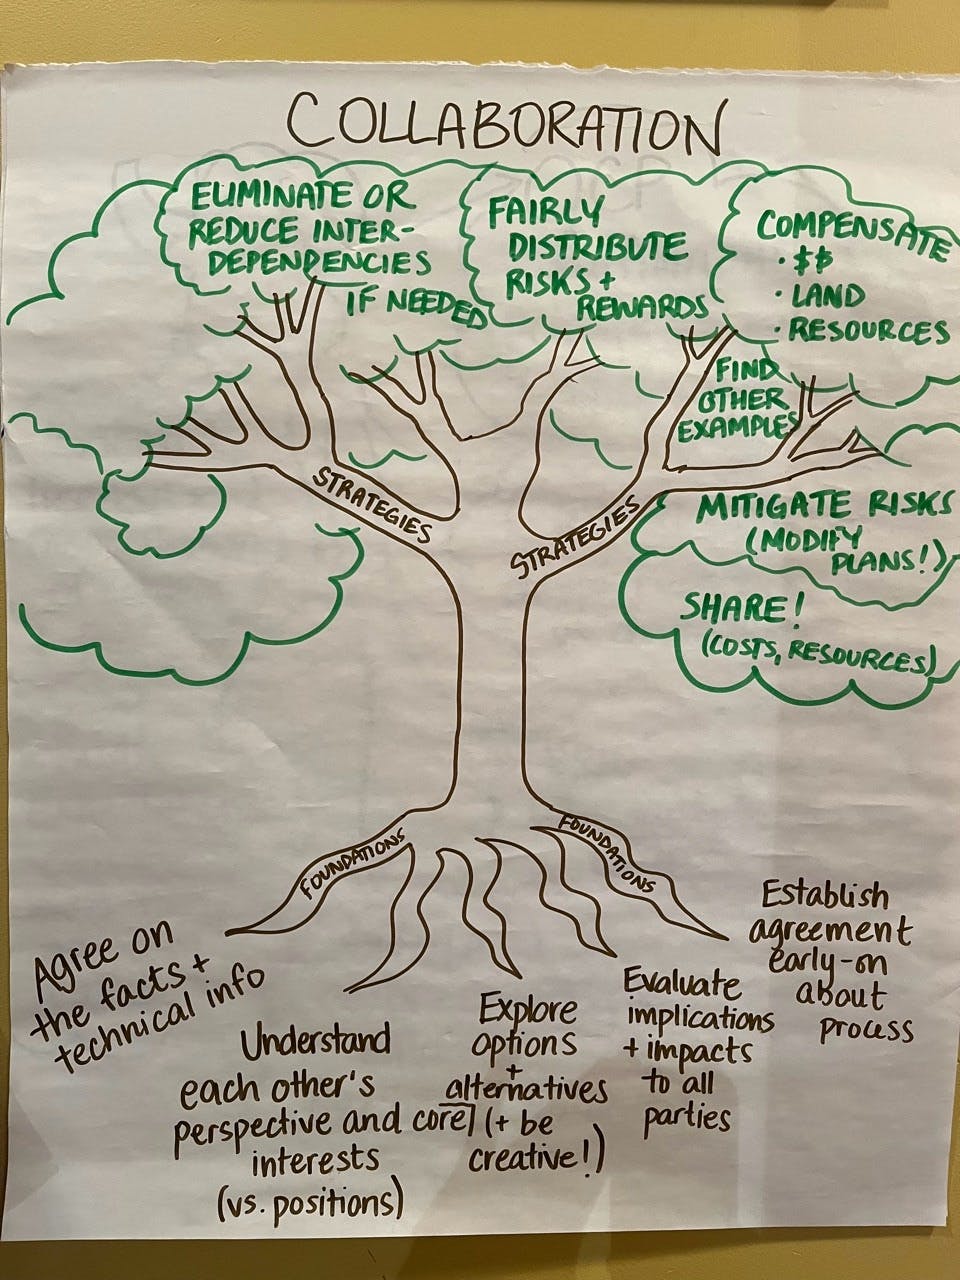 COLLABORATION
ELIMINATE OR
REDUCE INTER-
DEPENDENCIES
IF NEEDED
FAIRLY
DISTRIBUTE
RISKS +
REWARDS
COMPENSATE
· $$
· LAND
· RESOURCES
FIND
OTHER
EXAMPLES
STRATEGIES
STRATEGIES
MITIGATE RISKS
(MODIFY
PLANS!)
SHARE!
(COSTS, RESOURCES)
FOUNDATIONS
FOUNDATIONS
Agree on
the facts +
technical info
Understand
each other's
perspective and core
interests
(vs. positions)
Explore
options
+
alternatives
(+ be
creative!)
Evaluate
implications
+ impacts
to all
parties
Establish
agreement
early-on
about
process